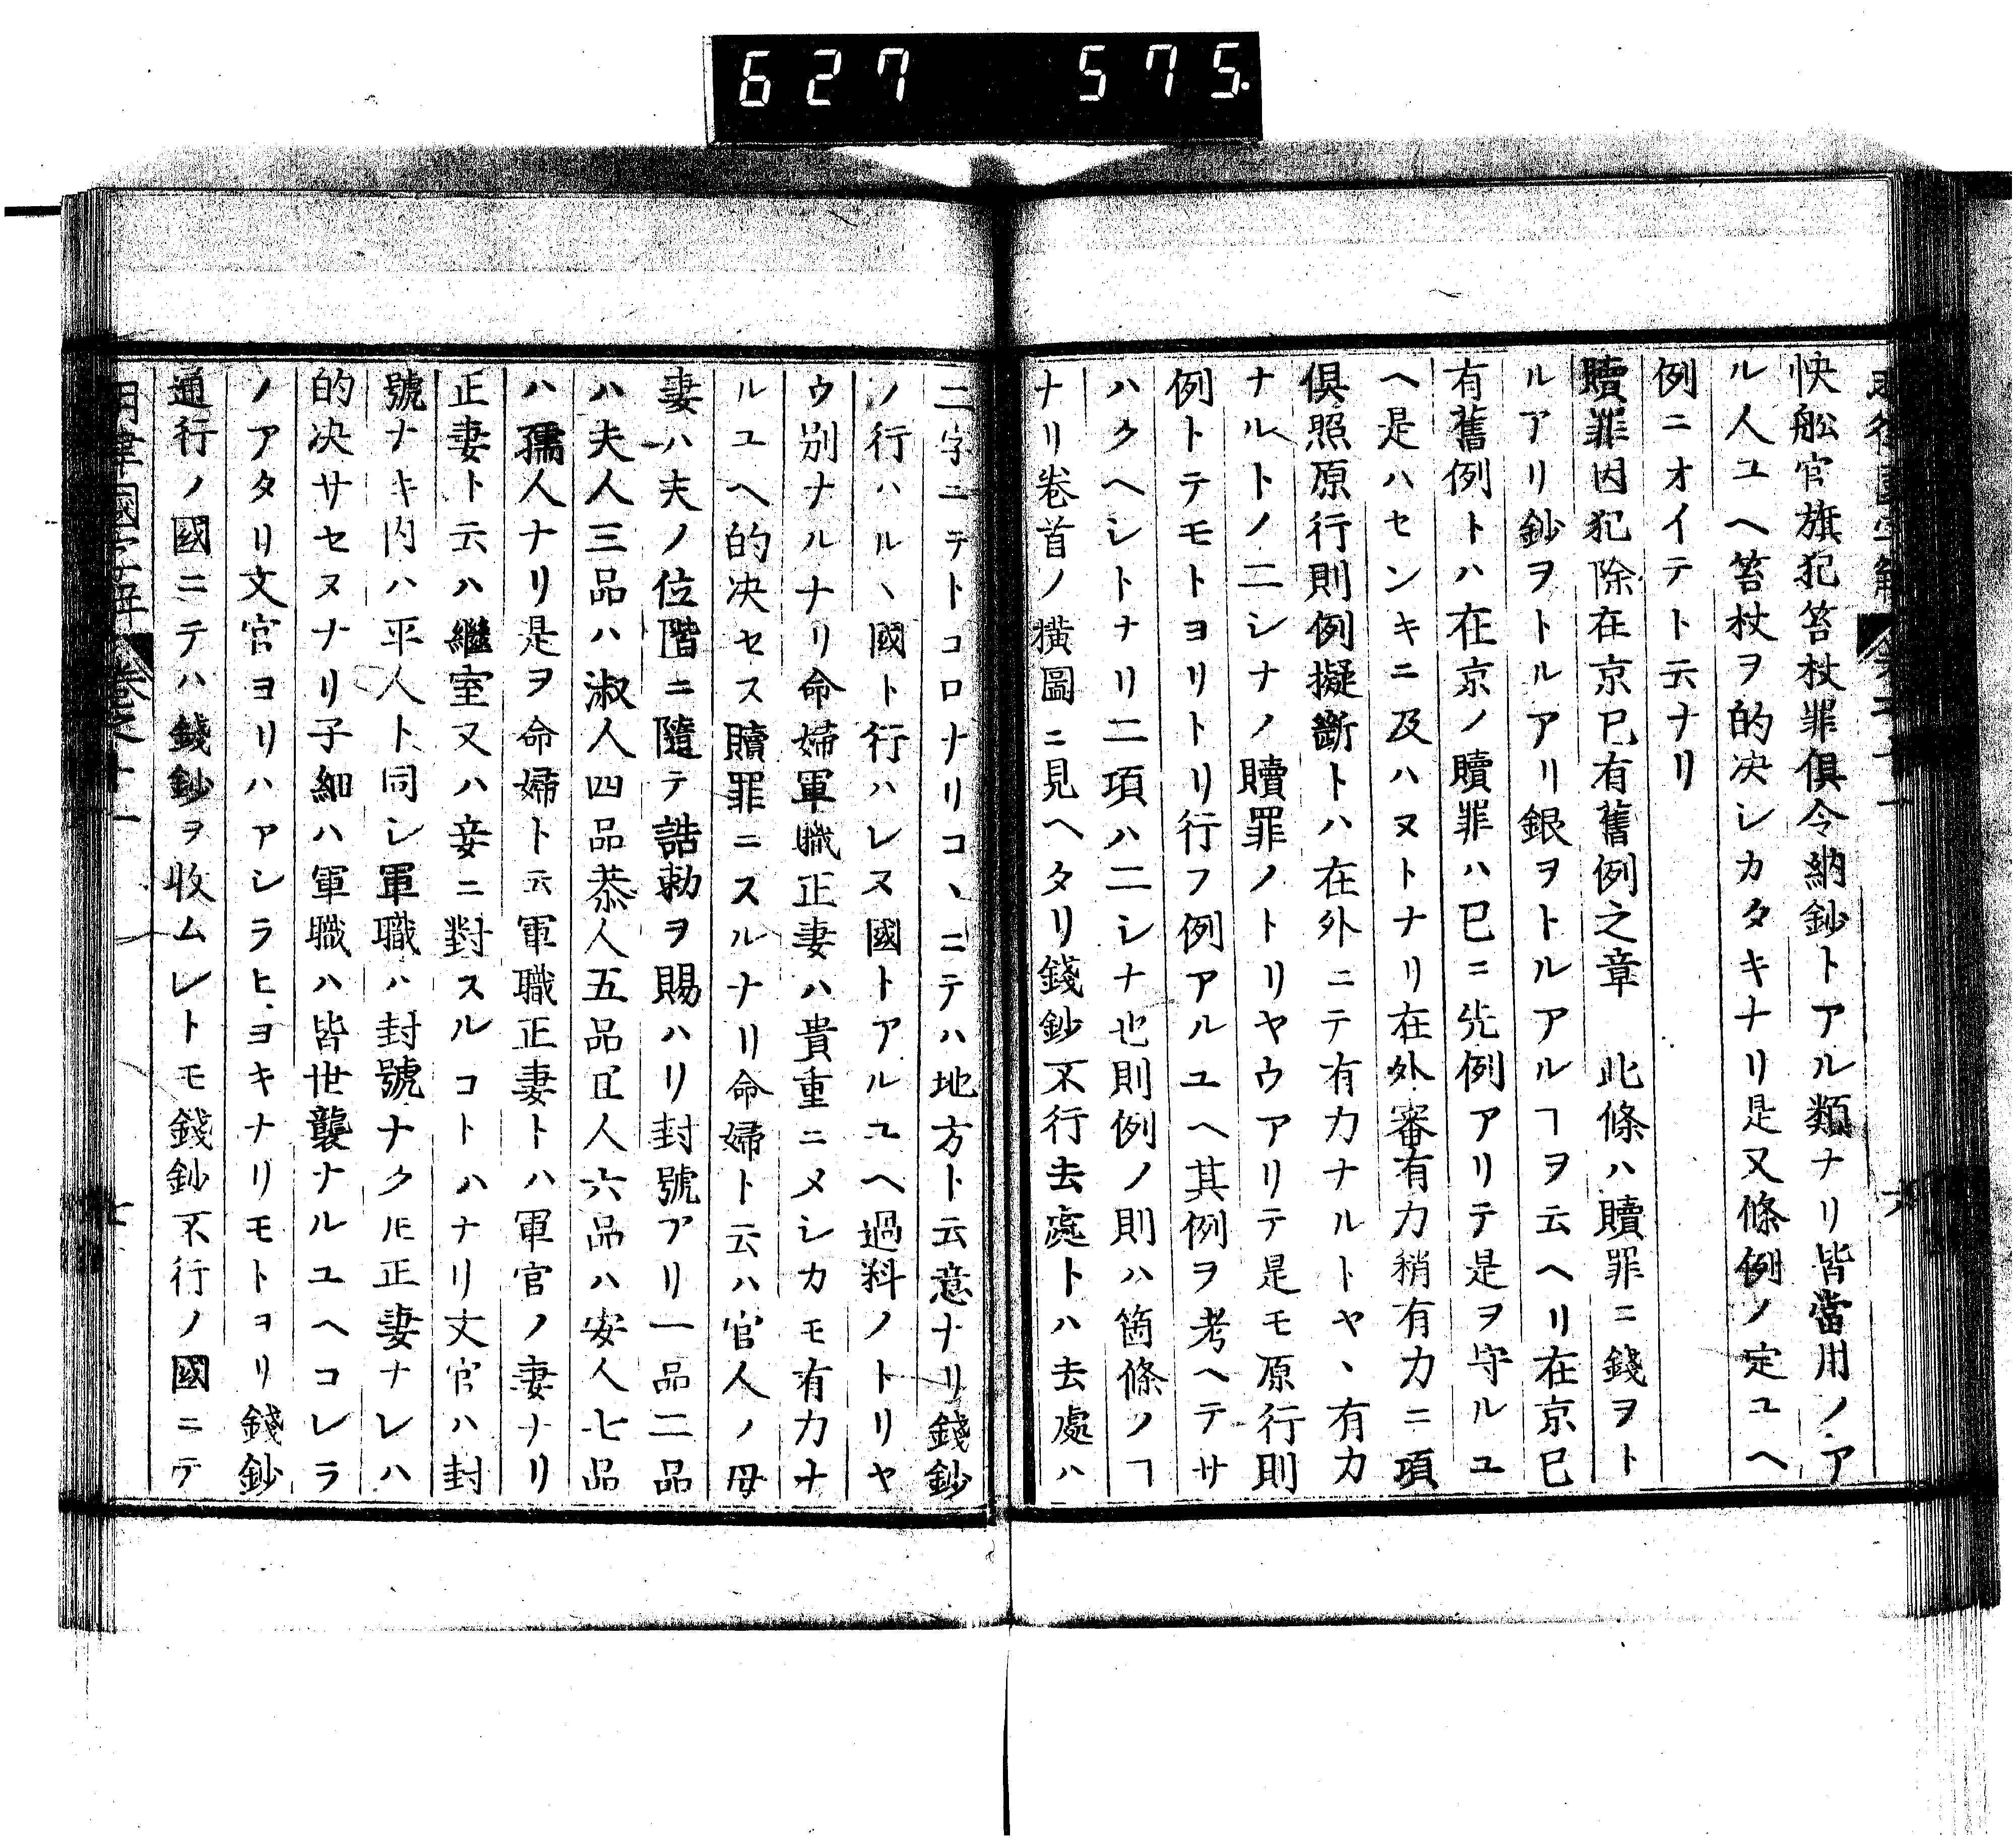 627 575.
快舩官旗犯笞杖罪俱令納鈔トアル類ナリ皆當用ノア
ル人ユヘ笞杖ヲ的决シカタキナリ是又條例ノ定ユヘ
例ニオイテト云ナリ
贖罪因犯除在京已有舊例之章　此條ハ贖罪ニ錢ヲト
ルアリ鈔ヲトルアリ銀ヲトルアルヿヲ云ヘリ在京已
有舊例トハ在京ノ贖罪ハ已ニ先例アリテ是ヲ守ルユ
ヘ是ハセンキニ及ハヌトナリ在外審有力稍有力二項
俱照原行則例擬斷トハ在外ニテ有力ナルトヤヽ有力
ナルトノ二シナノ贖罪ノトリヤウアリテ是モ原行則
例トテモトヨリトリ行フ例アルユヘ其例ヲ考ヘテサ
ハクヘシトナリ二項ハ二シナ也則例ノ則ハ箇條ノヿ
ナリ卷首ノ横圖ニ見ヘタリ錢鈔不行去處トハ去處ハ
二字ニテトコロナリコヽニテハ地方ト云意ナリ錢鈔
ノ行ハルヽ國ト行ハレヌ國トアルユヘ過料ノトリヤ
ウ別ナルナリ命婦軍職正妻ハ貴重ニメシカモ有力ナ
ルユヘ的决セス贖罪ニスルナリ命婦ト云ハ官人ノ母
妻ハ夫ノ位階ニ隨テ誥勅ヲ賜ハリ封號アリ一品二品
ハ夫人三品ハ淑人四品恭人五品冝人六品ハ安人七品
ハ孺人ナリ是ヲ命婦ト云軍職正妻トハ軍官ノ妻ナリ
正妻ト云ハ繼室又ハ妾ニ對スルコトハナリ文官ハ封
號ナキ内ハ平人ト同シ軍職ハ封號ナクㇳモ正妻ナレハ
的决サセヌナリ子細ハ軍職ハ皆世襲ナルユヘコレラ
ノアタリ文官ヨリハアシラヒヨキナリモトヨリ錢鈔
通行ノ國ニテハ錢鈔ヲ收ムレトモ錢鈔不行ノ國ニテ